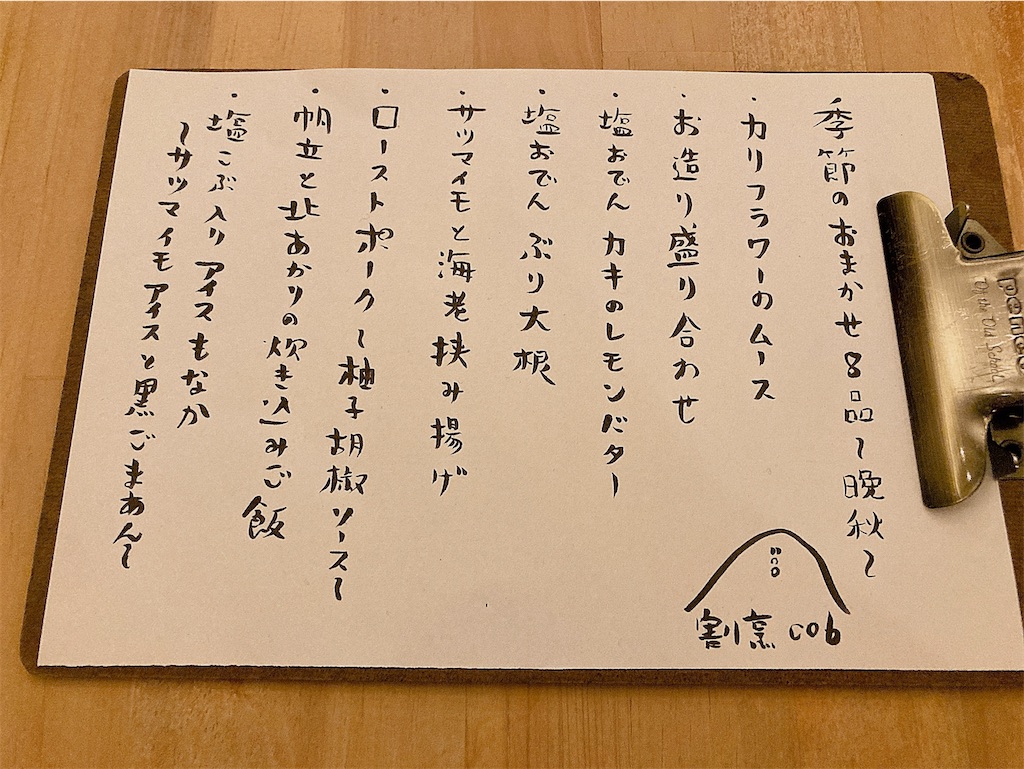 季節のおまかせ8品〜晩秋〜
・カリフラワーのムース
・お造り盛り合わせ
・塩おでん カキのレモンバター
・塩おでん ぶり大根
・サツマイモと海老挟み揚げ
・ローストポーク〜柚子胡椒ソース〜
・帆立と北あかりの炊き込みご飯
・塩こぶ入りアイスもなか
〜サツマイモアイスと黒ごまあん〜
割烹 cob
penco